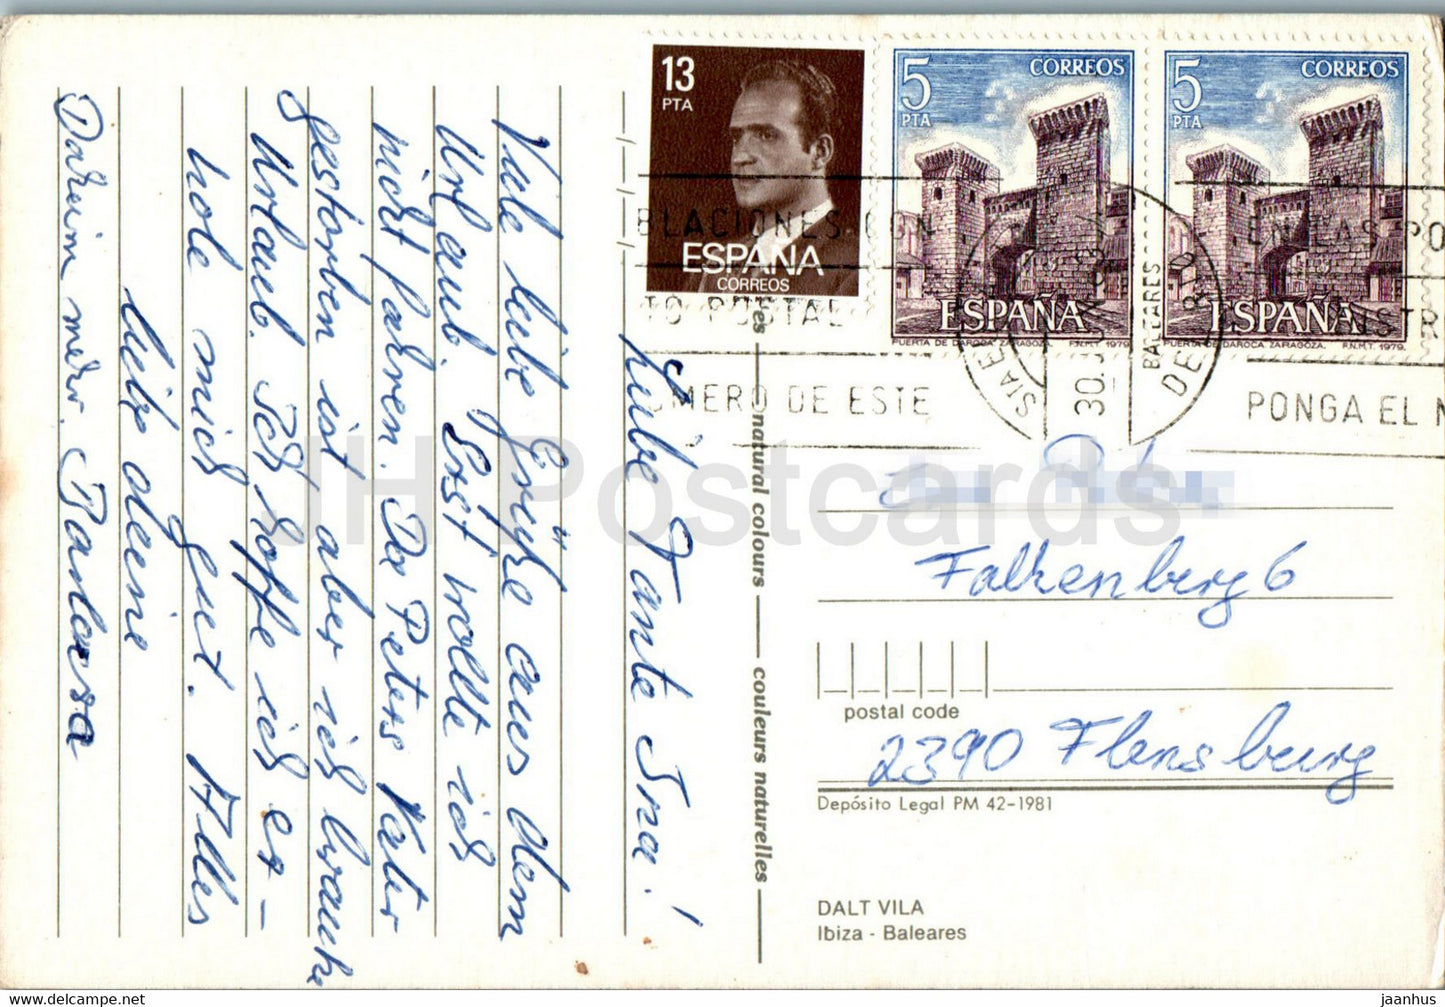 Liebe Tante Ina!
Viele liebe Grüße aus dem
Urlaub. Erst wollte ich
nicht fahren. Da Peters Vater
gestorben ist, aber ich brauche
Urlaub. Ich hoffe ich er-
hole mich gut. Alles
liebe deine
Barbara
13
PTA
ESPAÑA
CORREOS
5
PTA
CORREOS
ESPAÑA
PUERTA DE DAROCA. ZARAGOZA. F.N.M.T. 1979.
5
PTA
CORREOS
ESPAÑA
PUERTA DE DAROCA. ZARAGOZA. F.N.M.T. 1979.
BLACIONES CON
TO POSTAL
MERO DE ESTE
BALEARES
EN LAS PO
PONGA EL N
natural colours
couleurs naturelles
Falkenberg 6
postal code
2390 Flensburg
Depósito Legal PM 42-1981
DALT VILA
Ibiza - Baleares
JH Postcards
jaanhus — https://www.delcampe.net